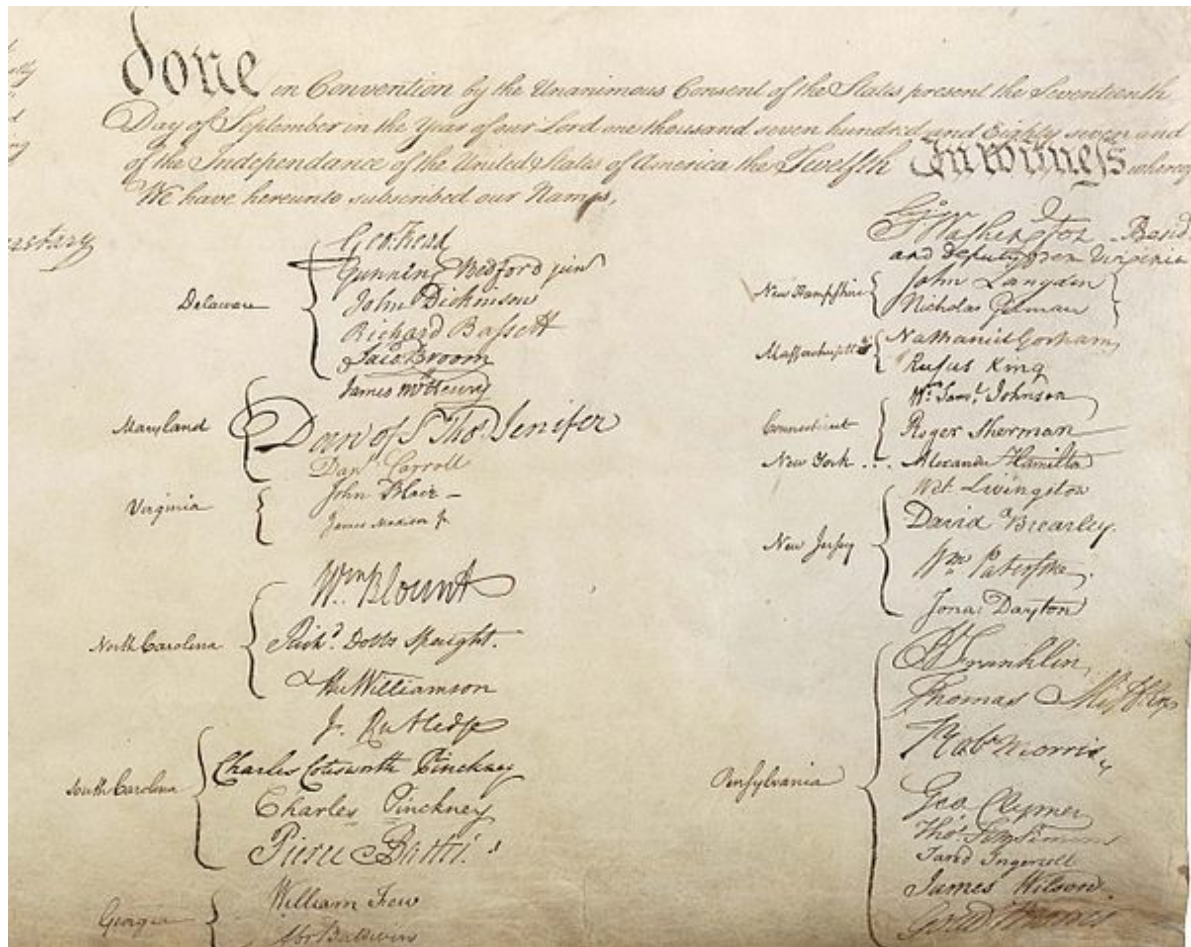 done in Convention by the Unanimous Consent of the States present the Seventeenth
Day of September in the Year of our Lord one thousand seven hundred and Eighty seven and
of the Independance of the United States of America the Twelfth In witness whereof
We have hereunto subscribed our Names,
Delaware
Geo: Read
Gunning Bedford jun
John Dickinson
Richard Bassett
Jaco: Broom
Maryland
James McHenry
Dan of St Thos. Jenifer
Danl. Carroll
Virginia
John Blair –
James Madison Jr.
North Carolina
Wm. Blount
Richd. Dobbs Spaight.
Hu Williamson
South Carolina
J. Rutledge
Charles Cotesworth Pinckney
Charles Pinckney
Pierce Butler.
Georgia
William Few
Abr Baldwin
Go. Washington Presid
and deputy from Virginia
New Hampshire
John Langdon
Nicholas Gilman
Massachusetts
Nathaniel Gorham
Rufus King
Connecticut
Wm. Saml. Johnson
Roger Sherman
New York . . .
Alexander Hamilton
New Jersey
Wil: Livingston
David Brearley.
Wm. Paterson.
Jona: Dayton
Pensylvania
B Franklin
Thomas Mifflin
Robt Morris
Geo Clymer
Thos. FitzSimons
Jared Ingersoll
James Wilson.
Gouv Morris
retary